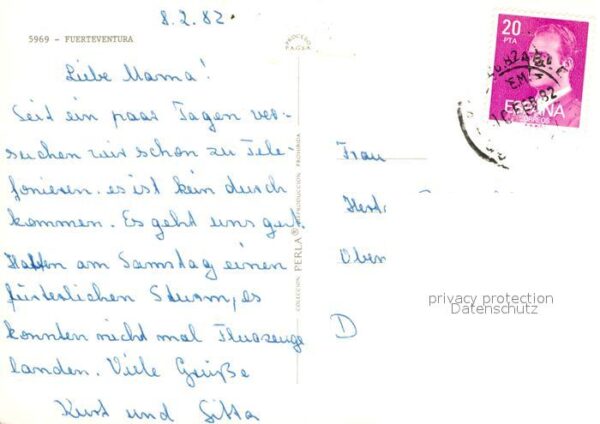 8.2.82
5969 - FUERTEVENTURA
Liebe Mama!
Seit ein paar Tagen ver-
suchen wir schon zu Tele-
fonieren. es ist kein durch
kommen. Es geht uns gut.
Hatten am Samstag einen
fürterlichen Sturm, es
konnten nicht mal Flugzeuge
landen. Viele Grüße
Kurt und Gitta
PROCESO
COLECCION PERLA ® REPRODUCCION PROHIBIDA
20
PTA
ESPAÑA
CORREOS
FEB 82
Frau
D
privacy protection
Datenschutz